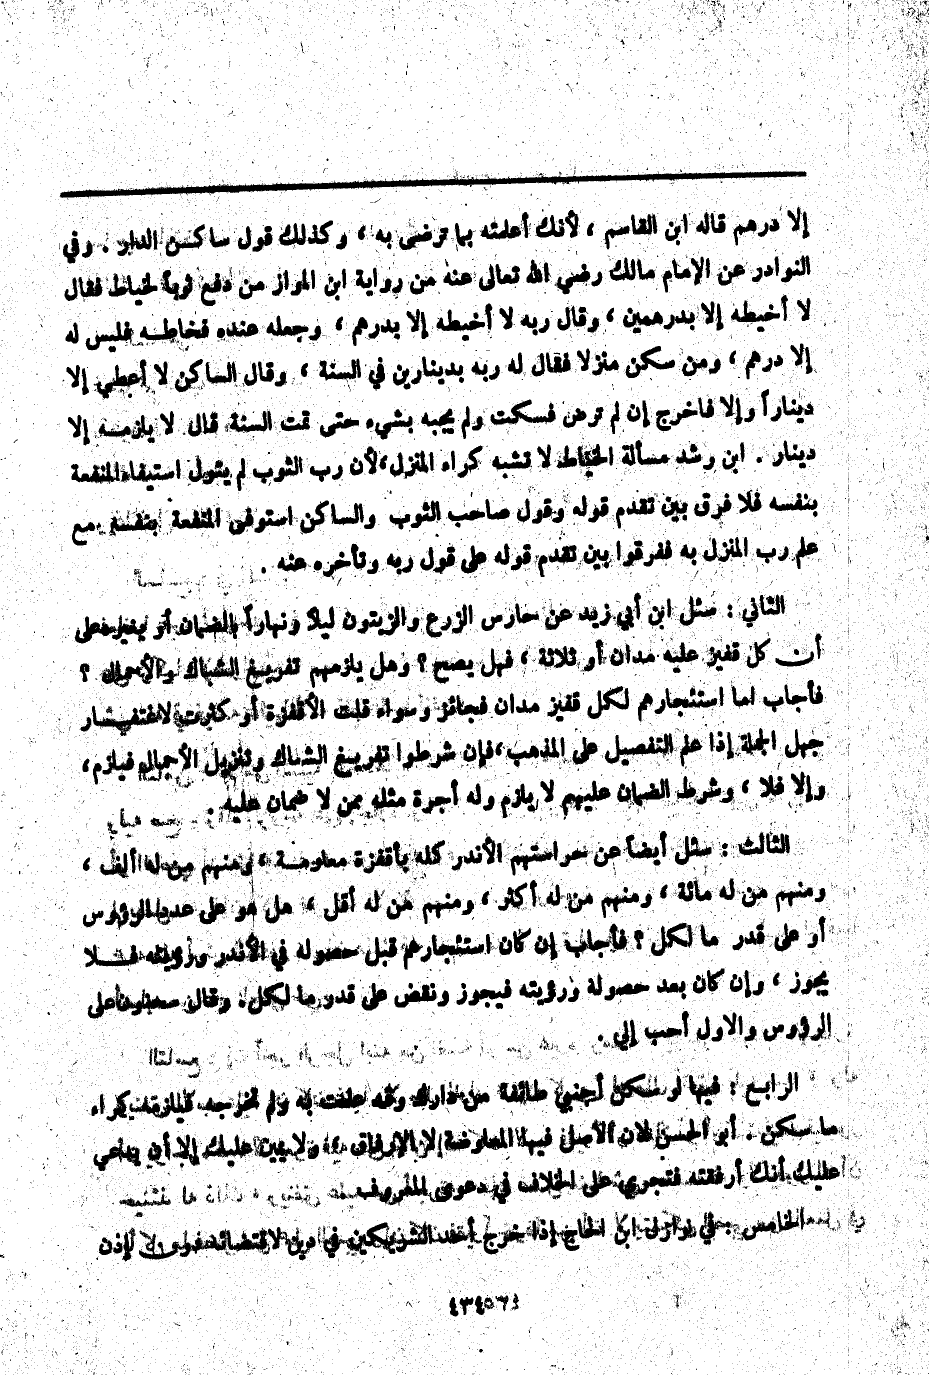 إلا درهم قاله ابن القاسم ، لأنك أعلمته بما ترضى به ، وكذلك قول ساكن الدار . وفي
النوادر عن الإمام مالك رضي الله تعالى عنه من رواية ابن المواز من دفع ثوباً لخياط فقال
لا أخيطه إلا بدرهمين ، وقال ربه لا أخيطه إلا بدرهم ، وجعله عنده فخاطه فليس له
إلا درهم ، ومن سكن منزلا فقال له ربه بدينارين في السنة ، وقال الساكن لا أعطي إلا
ديناراً وإلا فاخرج إن لم ترض فسكت ولم يجبه بشيء حتى تمت السنة قال لا يلزمه إلا
دينار . ابن رشد مسألة الخياط لا تشبه كراء المنزل،لأن رب الثوب لم يتول استيفاءالمنفعة
بنفسه فلا فرق بين تقدم قوله وقول صاحب الثوب والساكن استوفى المنفعة بنفسه مع
علم رب المنزل به ففرقوا بين تقدم قوله على قول ربه وتأخره عنه .
الثاني : سئل ابن أبي زيد عن حارس الزرع والزيتون ليلا ونهاراً بالضمان أو بغيره على
أن كل قفيز عليه مدان أو ثلاثة ، فهل يصح ؟ وهل يلزمهم تفريغ الشباك والأحمال ؟
فأجاب اما استئجارهم لكل قفيز مدان فجائز وسواء قلت الأقفزة أو كثرت لاغتفار
جهل الجملة إذا علم التفصيل على المذهب،فإن شرطوا تفريغ الشباك وتنزيل الأحمال فيلزم،
وإلا فلا ، وشرط الضمان عليهم لا يلزم وله أجرة مثله ممن لا ضمان عليه .
الثالث : سئل أيضاً عن حراستهم الأندر كله بأقفزة معلومة ، ومنهم من له ألف ،
ومنهم من له مائة ، ومنهم من له أكثر ، ومنهم من له أقل ، هل هو على عدد الرؤوس
أو على قدر ما لكل ؟ فأجاب إن كان استئجارهم قبل حصوله في الأندر ورؤيته فلا
يجوز ، وإن كان بعد حصولة ورؤيته فيجوز ونقض على قدر ما لكل . وقال سحنون على
الرؤوس والاول أحب إلي .
الرابع : فيها لو سكن أجنبي طائفة من دارك وقد علمت به ولم تخرجه فيلزمه كراء
ما سكن . أبو الحسن لان الأصل فيها المعاوضة إلا الإرفاق ، ولا يمين عليك إلا أن يدعي
عليك أنك أرفقته فتجري على الخلاف في دعوى المعروف
الخامس في نوازل ابن الحاج إذا خرج أحد الشريكين في دين لاقتضائه دون إذن